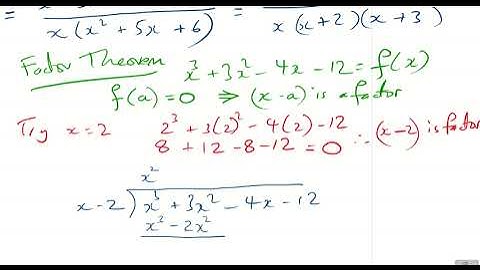 = x(x² + 5x + 6) = x(x+2)(x+3)
Factor Theorem
x³ + 3x² - 4x - 12 = f(x)
f(a) = 0 ⇒ (x-a) is a factor
Try x = 2 2³ + 3(2)² - 4(2) - 12
8 + 12 - 8 - 12 = 0 ∴ (x-2) is factor
x²
x - 2 ) x³ + 3x² - 4x - 12
x³ - 2x²